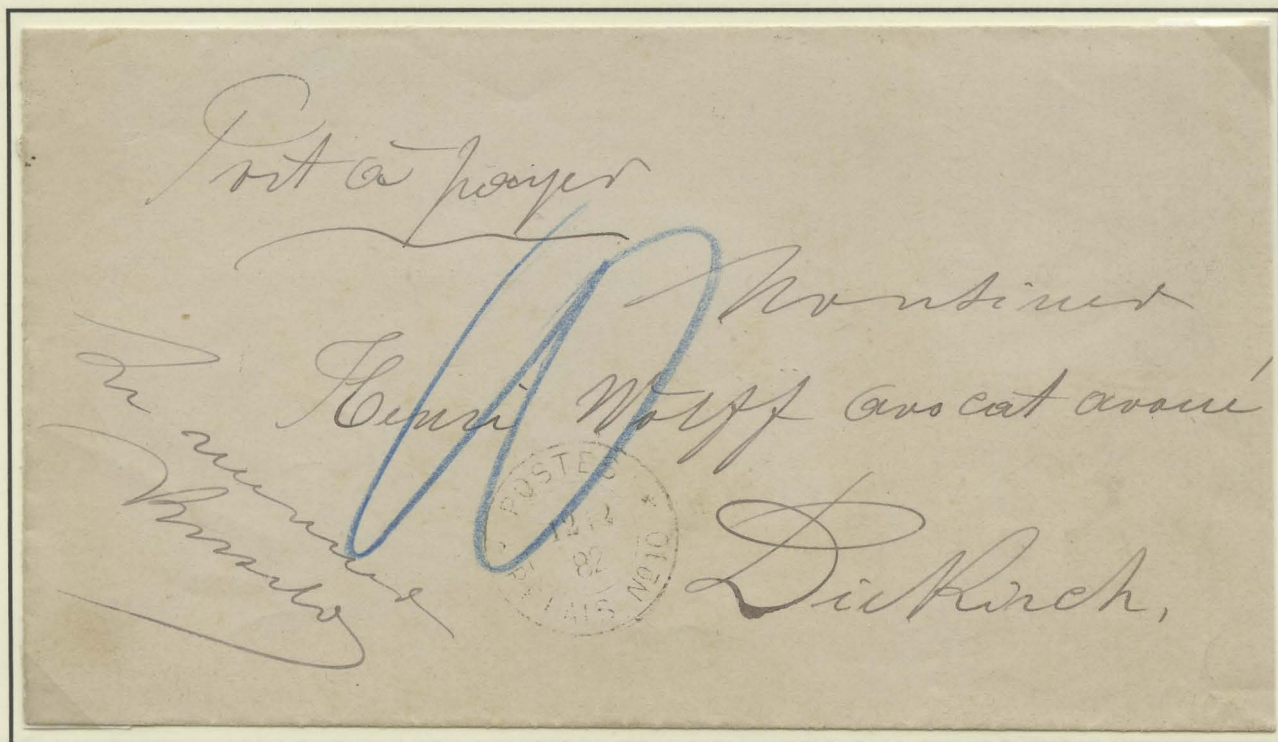 Port à payer
10
Monsieur
Henri Wolff avocat avoué
Diekirch,
POSTES
12 12
82
RELAIS No 10